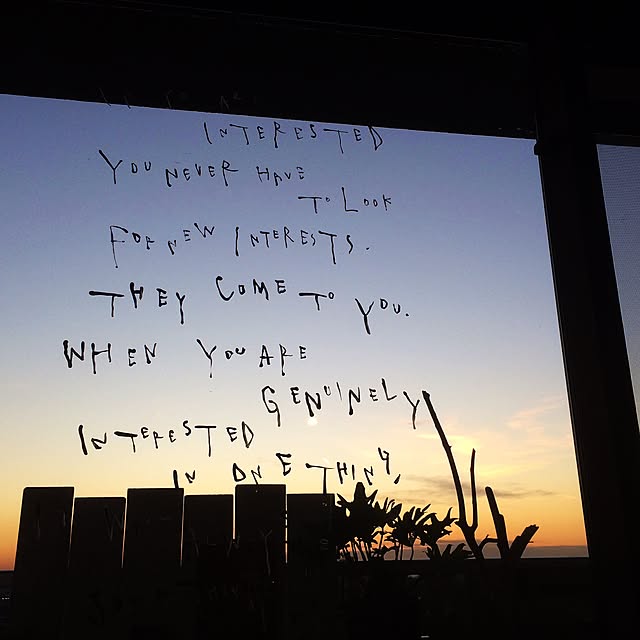 INTERESTED
YOU NEVER HAVE
TO LOOK
FOR NEW INTERESTS.
THEY COME TO YOU.
WHEN YOU ARE
GENUINELY
INTERESTED
IN ONE THING,